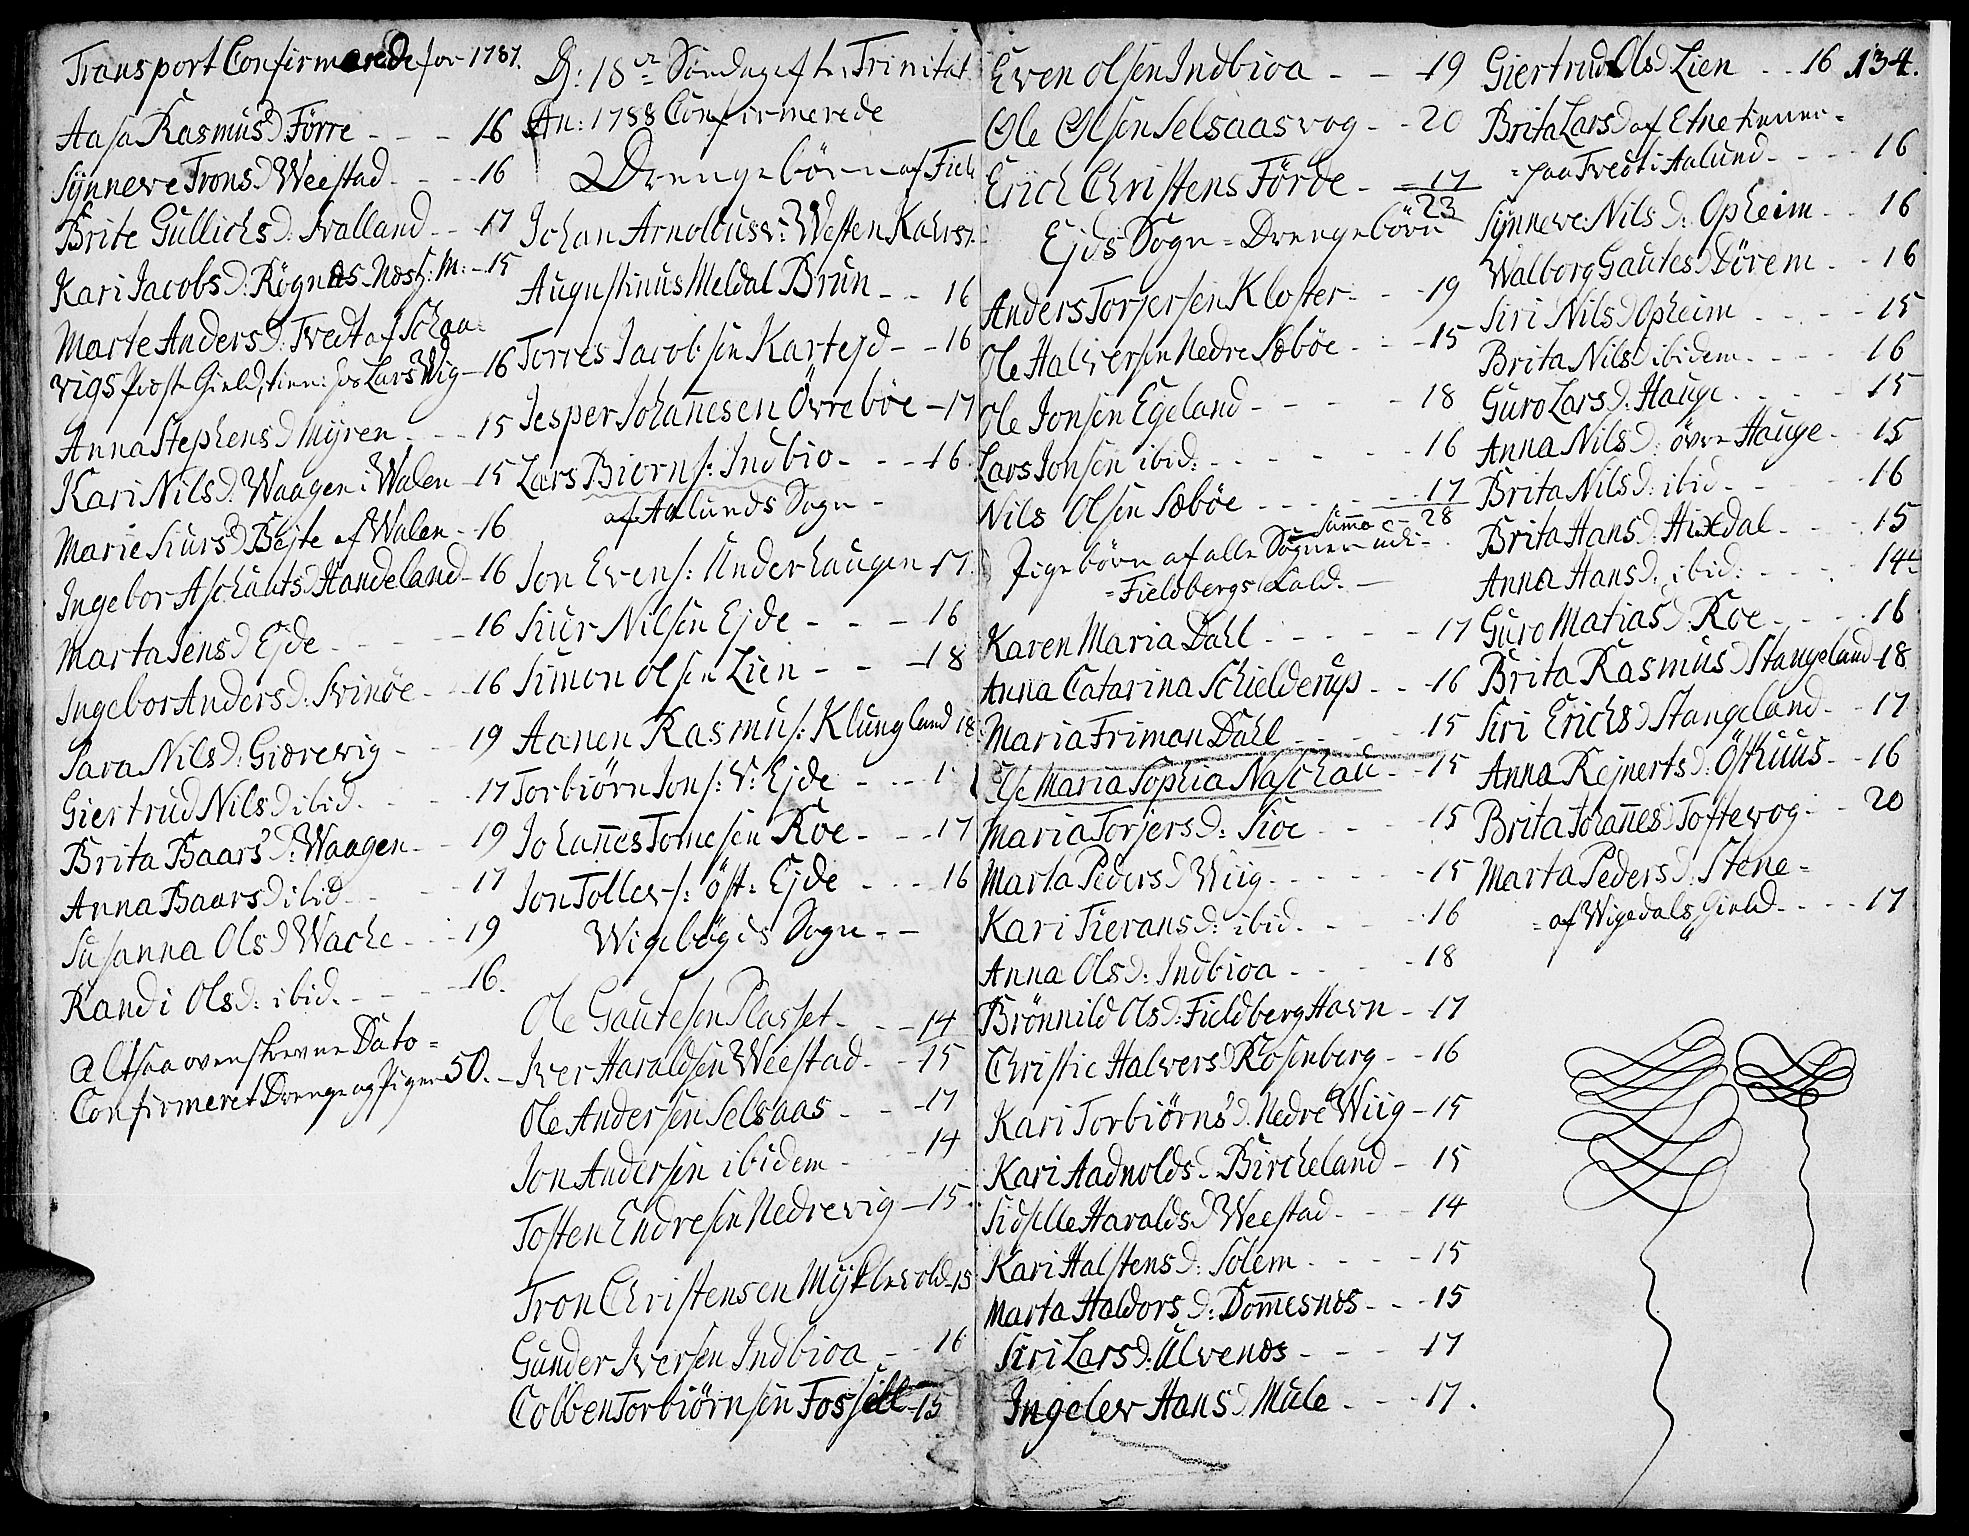 Transport Confirmerede for 1787.
Aasa Rasmusd Förre - - - 16
Synneve Tronsd Weestad - - - 16
Brite Gullichsd: Svalland - - 17
Kari Jacobsd: Rögnes Nosz: M: - 15
Marte Andersd: Tvedt af Schaa=
vigs Præste Gield, tien: hos Lars Wig - 16
Anna Stephensd Myren - - - 15
Kari Nilsd: Waagen i Walen - 15
Marie Siursd Bejte af Walen - 16
Ingebor Aschautsd Handeland - 16
Marta Jensd Ejde - - - 16
Ingebor Andersd: Svinöe - - 16
Sara Nilsd: Gierevig - - 19
Giertrud Nilsd ibid. - - 17
Brita Baarsd: Waagen - - 19
Anna Baarsd ibid - - 17
Susanna Olsd Wache - - 19
Randi Olsd: ibid. - - - 16.
Altsaa ovenskrevne Dato =
Confirmeret Drenge og Piger 50.
D: 18de Søndag efter Trinitat
An: 1788 Confirmerede
Drengebörn af Fieb
Johan Arnoldus v: Westen
Augustinus Meldal Brun - - 16
Torres Jacobsen Kartejd - - 16
Jesper Johanesen Övrebøe - 17
Lars Biorns: Indbio - - - 16.
af Aalunds Sogn -
Jon Evens: Underhaugen 17.
Siur Nilsen Ejde - - - 16
Simon Olsen Lien - - - 18
Aanen Rasmus: Klungland 18
Torbiörn Jons: V: Ejde - - - 1
Johanes Tomesen Roe - - - 17
Jon Tollevs: öst: Ejde - - - 16
Wigebøgds Sogn - -
Ole Gautesen Plasset - - - 14
Iver Haraldsen Weestad - - 15
Ole Andersen Selsaas - - - 17
Jon Andersen ibidem - - - 14
Tosten Endresen Nedrevig - 15
Tron Christensen Myklevold - 15
Gunder Iversen Indbioa - - 16
Colben Torbiörnsen Fossell - 15
Even Olsen Indbioa - - - 19
Ole Olsen Selsaasvog - - 20
Erich Christens Förde - - 17
23
Ejds Sogn = Drengebörn
Anders Torjersen Kloster - - - 19
Ole Halversen Nedre Sæbøe - - - 15
Ole Jonsen Egeland - - - - 18
Lars Jonsen ibid: - - - - - 16
Nils Olsen Sæbøe - - - - - 17
Suma - 28
Pigebörn af alle Sogner udi
= Fieldbergs Kald. -
Karen Maria Dahl - - - - 17
Anna Catarina Schielderup - - 16
Maria Friman Dahl - - - - 15
Else Maria Sophia Naschau - - 15
Maria Torjersd: Sioe - - - 15
Marta Pedersd Wiig - - - - 15
Kari Tieransd: ibid. - - - 16
Anna Olsd: Indbioa - - - 18
Brönnild Olsd: Fieldberg Havn - 17
Christie Halversd Rosenberg - - 16
Kari Torbiörnsd. Nedre Wiig - 15
Kari Aadnolds- Bircheland - 15
Sidselle Haraldsd Weestad - - - 14
Kari Halstensd: Solem - - - - 15
Marta Haldorsd: Domesnes - - - 15
Siri Larsd: Ulvenos - - - - 17
Ingelev Hansd Mule - - - 17.
Giertrud Olsd Lien - - 16
134.
Brita Larsd af Etne tiener =
= paa Tvedt i Aalund - - - - 16
Synneve Nilsd: Opheim - - 16
Walborg Gautesd Dörem - - 16
Siri Nilsd Opheim - - - - 15
Brita Nilsd ibidem - - - - 16
Guro Larsd: Hauge - - - - 15
Anna Nilsd: övre Hauge - - 15
Brita Nilsd: ibid - - - - 16
Brita Hansd: Hixdal - - - 15
Anna Hansd: ibid: - - - - 14
Guro Matiasd: Roe - - - - 16
Brita Rasmusd Stangeland - 18
Siri Erichsd Stangeland - - 17
Anna Rejnertsd: Östhuus - - 16
Brita Johanesd Toftevog - - 20
Marta Pedersd: Stene =
= af Wigedals Gield - - - - 17